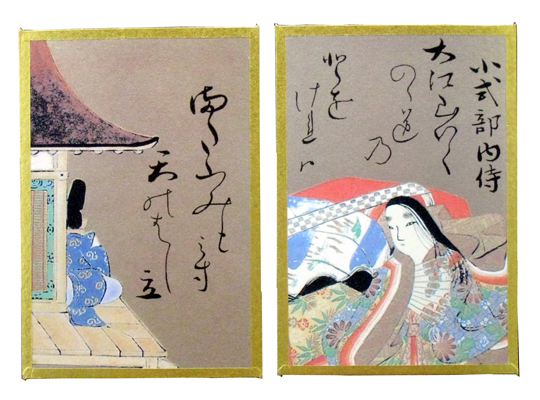 小式部内侍
大江山いく
のゝ道
乃
とを
けれハ
またふみも
みす
天のはし
立